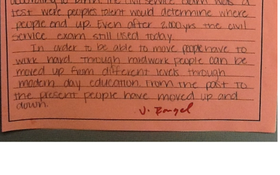 according to birth. The civil service exam was a
test were peoples talent would determine where
people end up. Even after 2,000yrs the civil
service exam still used today.
In order to be able to move people have to
work hard. Through hardwork people can be
moved up from different levels through
modern day education. From the past to
the present people have moved up and
down.